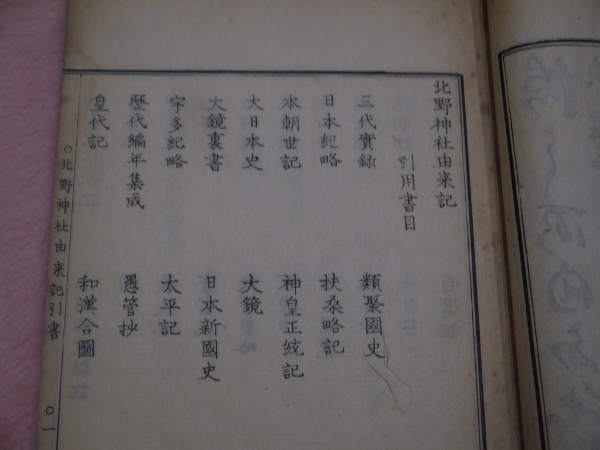 北野神社由来記
引用書目
三代實錄
類聚國史
日本紀略
扶桑略記
本朝世記
神皇正統記
大日本史
大鏡
大鏡裏書
日本新國史
宇多紀略
太平記
歷代編年集成
愚管抄
皇代記
和漢合圖
○北野神社由来記引書
○一